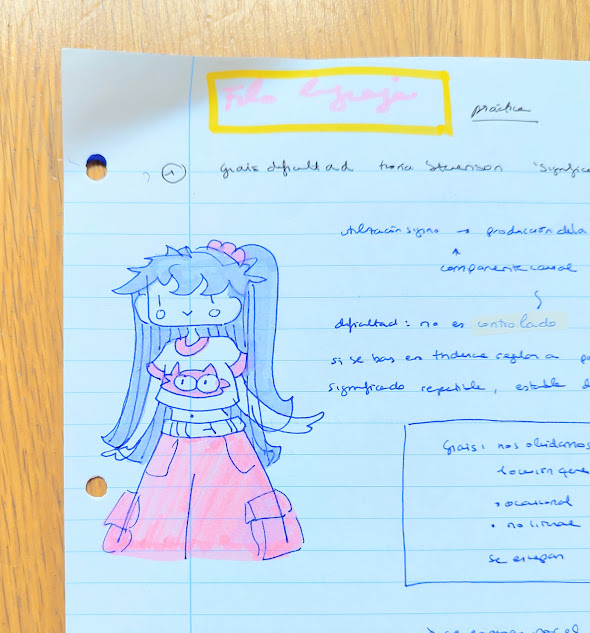 Filo lenguaje
práctica
1 Grais dificultad teoría Stevenson "significa
utilización signo → producción de la
componente causal
dificultad: no es controlado
si se bas en
significado repetible, estable d
Grais: nos olvidamos
• ocasional
se escapan